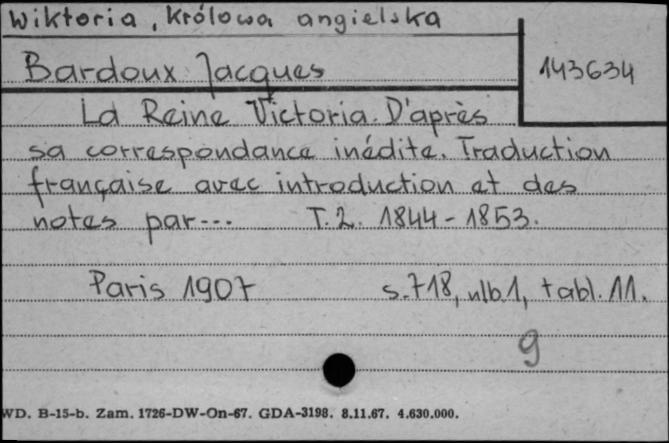 Wiktoria, Królowa angielska
Bardoux Jacques
143634
La Reine Victoria. D'après
sa correspondance inédite. Traduction
française avec introduction et des
notes par... T. 2. 1844-1853.
Paris 1907 s. 718, nlb 1, tabl. 11.
9
WD. B-15-b. Zam. 1726-DW-On-67. GDA-3198. 8.11.67. 4.630.000.